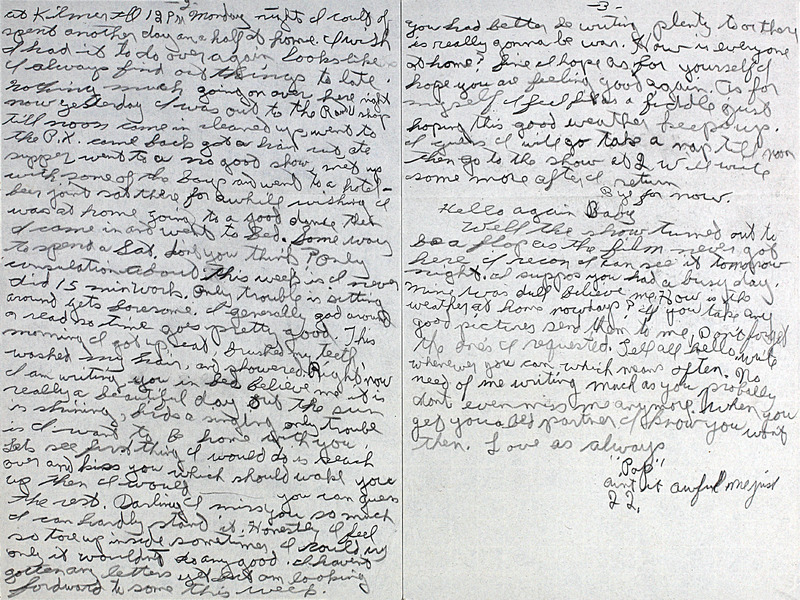 -2-
at Kilmer till 12 Pm Monday night I could of
spent another day an a half at home. I wish
I had it to do over again Looks like
I always find out things to late
nothing much going on over here right
now yesterday I was out to the Radio shop
till noon came in cleaned up went to
the P.X. came back got a hair cut ate
supper went to a no good show, met up
with some of the boys an went to a hotel-
beer joint sat there for awhile wishing I
was at home going to a good dance then
I came in and went to bed. Some way
to spend a Sat. dont you think? Only
consulation about this week is I never
did 15 min work. Only trouble is setting
around gets lonesome. I generally gad around
a read so time goes pretty good. This
morning I got up, eat, brushed my teeth,
washed my hair, and showered. Right now
I am writing you in bed believe me it is
really a beautiful day out the sun
is shining, birds a singing only trouble
is I want to be home with you.
Lets see first thing I would do is reach
over and kiss you which should wake you
up then I would you can guess
the rest. Darling I miss you so much
I can hardly stand it. Honestly I feel
so tore up inside sometimes I could cry
only it wouldn't do any good. I havent
gotten any letters yet but am looking
fordward to some this week.
-3-
you had better be writing plenty to or there
is really gonna be war. How is everyone
at home? fine I hope as for yourself I
hope you are feeling good again. As for
myself I feel fit as a fiddle just
hoping this good weather keeps up.
I guess I will go take a nap till noon
then go to the show at 2 will write
some more after I return
By for now.
Hello again Baby
Well the show turned out to
be a flop as the film never got
here I recon I can see it tomorrow
night. I suppos you had a busy day.
mine was dull believe me. How is the
weather at home nowdays? if you take any
good pictures send them to me, Dont forget
the one's I requested. Tell all hello, write
whenever you can which means often. No
need of me writing much as you probably
dont even miss me anymore. When you
get you a bed partner I know you wont
then. Love as always
"Pop"
aint it awful me just
22.